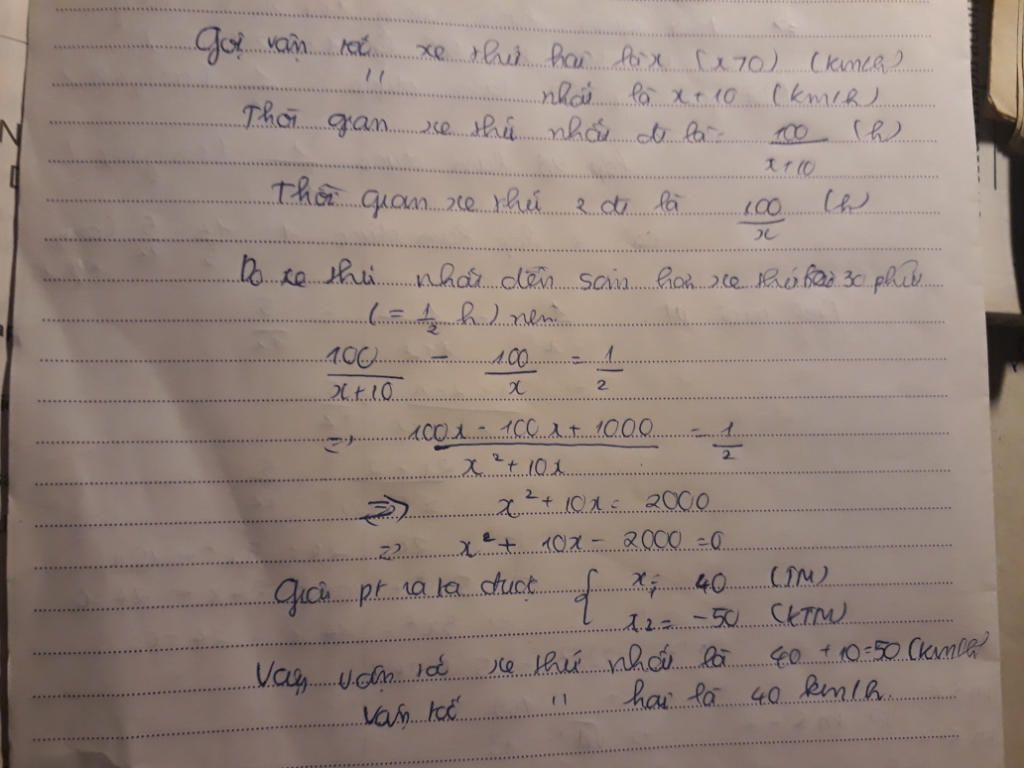 Gọi vận tốc xe thứ hai là x (x>0) (km/h)
" nhất là x+10 (km/h)
Thời gian xe thứ nhất đi là: 100/(x+10) (h)
Thời gian xe thứ 2 đi là 100/x (h)
Do xe thứ nhất đến sớm hơn xe thứ hai 30 phút
(= 1/2 h) nên
100/(x+10) - 100/x = 1/2
=> (100x - 100x + 1000)/(x²+10x) = 1/2
=> x² + 10x = 2000
=> x² + 10x - 2000 = 0
Giải pt ra ta được { x₁= 40 (TM)
x₂= -50 (KTM)
Vậy vận tốc xe thứ nhất là 40 + 10=50 (km/h)
vận tốc " hai là 40 km/h.